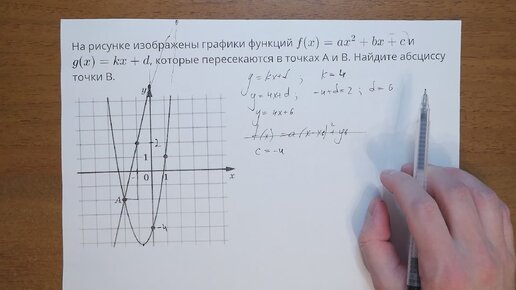 На рисунке изображены графики функций f(x) = ax² + bx + c и
g(x) = kx + d, которые пересекаются в точках A и B. Найдите абсциссу
точки B.
y = kx+d ; k = 4
y = 4x+d ; -4+d=2 ; d = 6
y = 4x+6
f(x) = a(x-x₀)²+y₀
c = -4
y
2
1
-1 0 1 x
A
-4